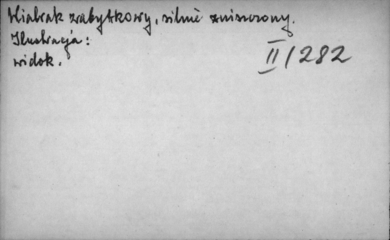 Wiatrak zabytkowy, silnie zniszczony.
Ilustracja:
widok.
II/282